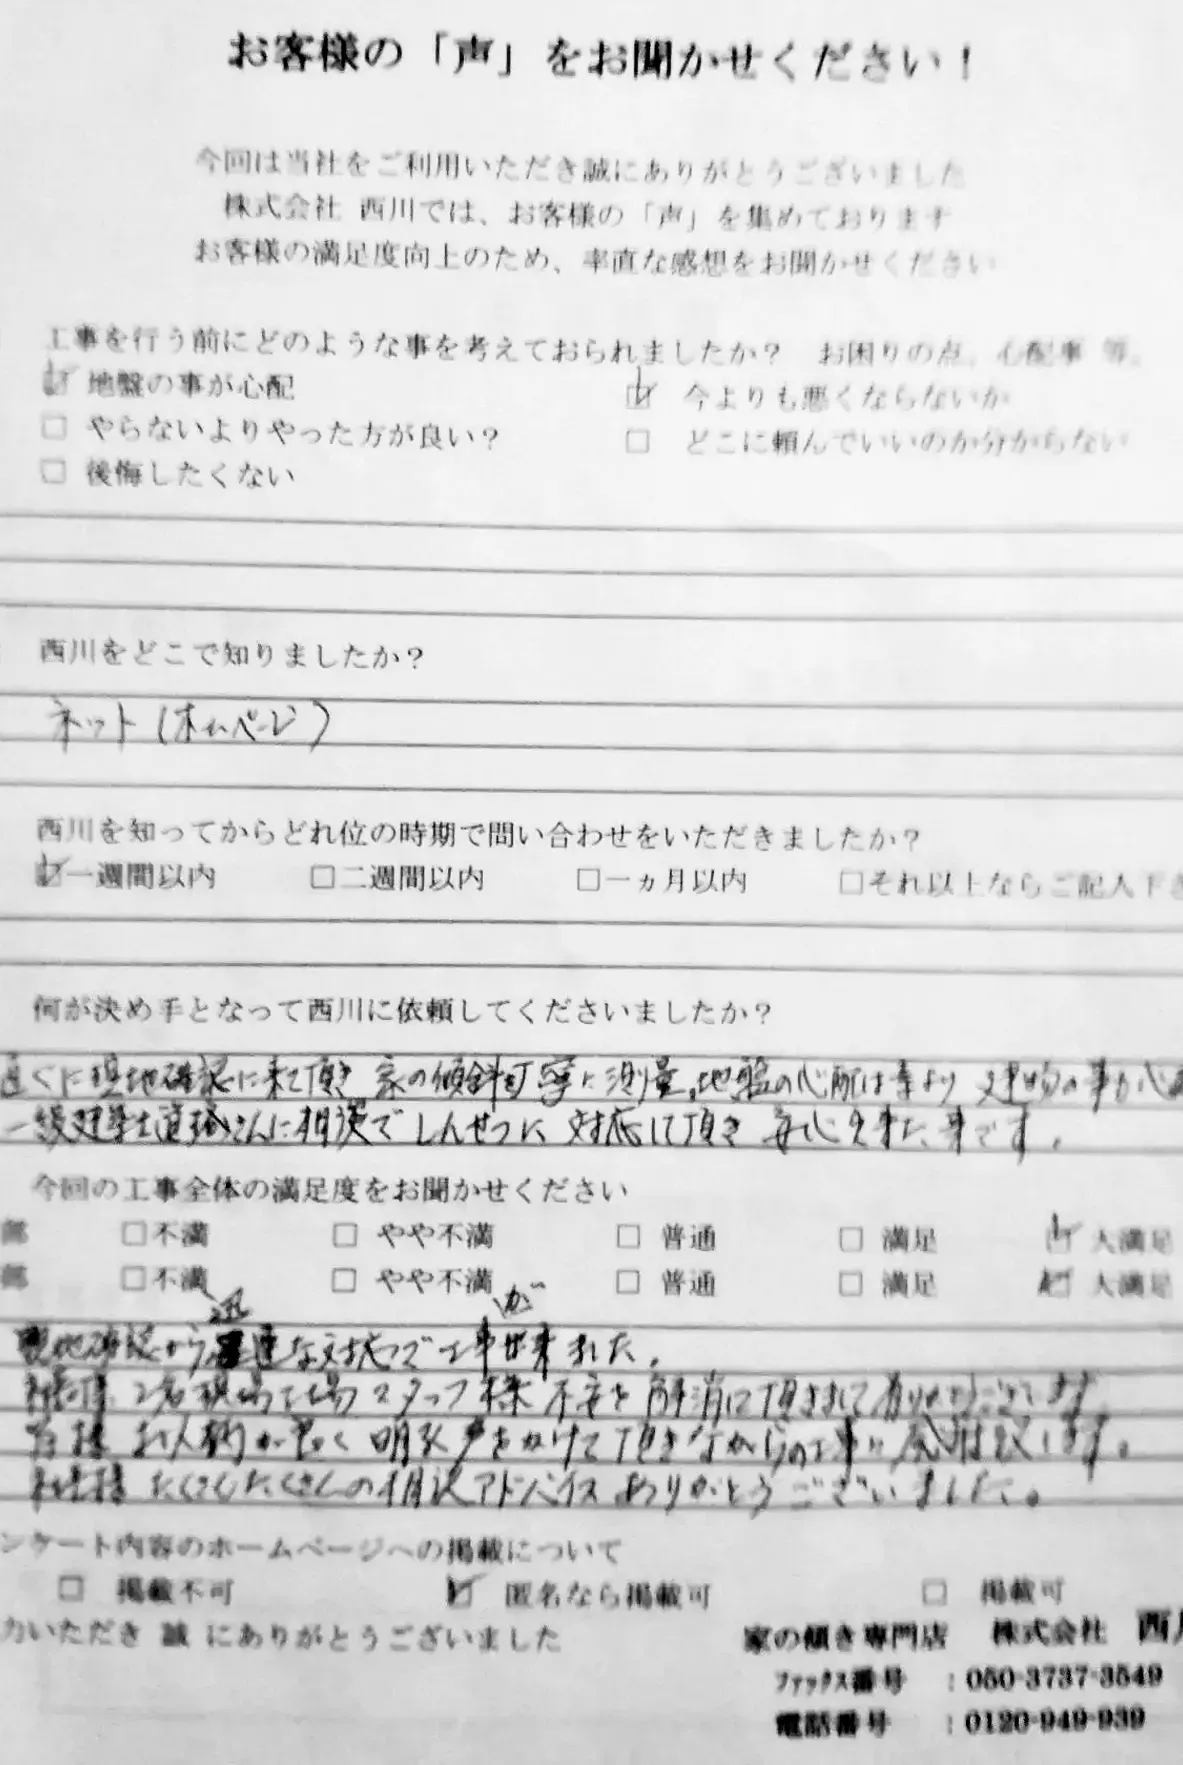 お客様の「声」をお聞かせください！
今回は当社をご利用いただき誠にありがとうございました
株式会社 西川では、お客様の「声」を集めております
お客様の満足度向上のため、率直な感想をお聞かせください
工事を行う前にどのような事を考えておられましたか？ お困りの点、心配事 等。
☑ 地盤の事が心配 ☑ 今よりも悪くならないか
□ やらないよりやった方が良い？ □ どこに頼んでいいのか分からない
□ 後悔したくない
西川をどこで知りましたか？
ネット（ホームページ）
西川を知ってからどれ位の時期で問い合わせをいただきましたか？
☑一週間以内 □二週間以内 □一ヵ月以内 □それ以上ならご記入下さ
何が決め手となって西川に依頼してくださいましたか？
直ぐに現地確認に来て頂き 家の傾斜町寧に測量、地盤の心配は元より 建物の事が心
一級建築士 さんに相談で しんせつに 対応して頂き 安心出来た事です。
今回の工事全体の満足度をお聞かせください
部 □不満 □ やや不満 □ 普通 □ 満足 ☑ 大満足
部 □不満 □ やや不満 □ 普通 □ 満足 ☑ 大満足
現地確認から迅速な対応で工事が出来ました。
現場 スタッフ様 不安を解消して頂きまして有りがとうございます
皆様 お人柄が良く 明るく声をかけて頂きながらの工事に感謝致します。
たくさんたくさんの相談アドバイス ありがとうございました。
ンケート内容のホームページへの掲載について
□ 掲載不可 ☑ 匿名なら掲載可 □ 掲載可
力いただき 誠 にありがとうございました
家の傾き専門店 株式会社 西川
ファックス番号 ：050-3737-3549
電話番号 ：0120-949-939